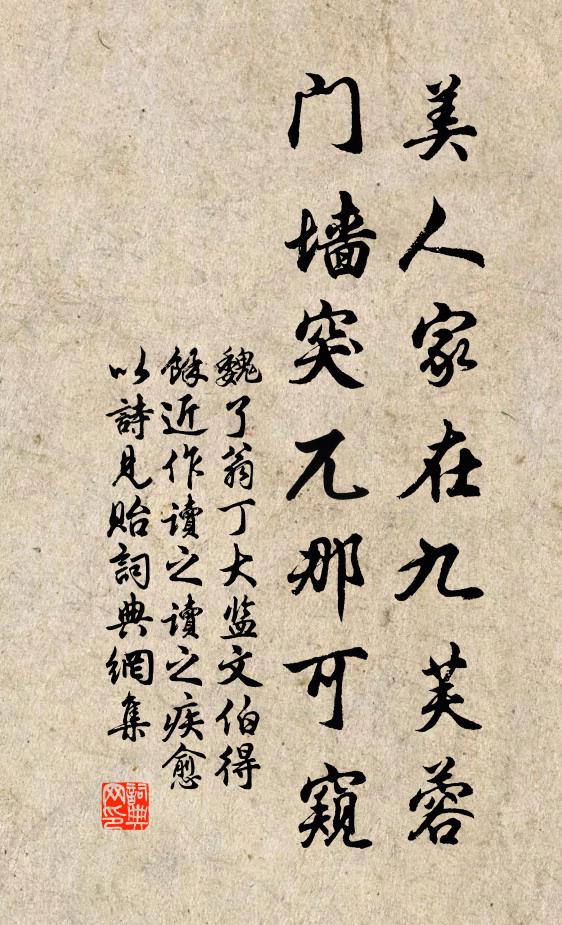 美人家在九芙蓉
门墙突兀那可窥
魏了翁丁大监文伯得
馀近作读之读之疾愈
以詩見貽詞典網集
詞典网印